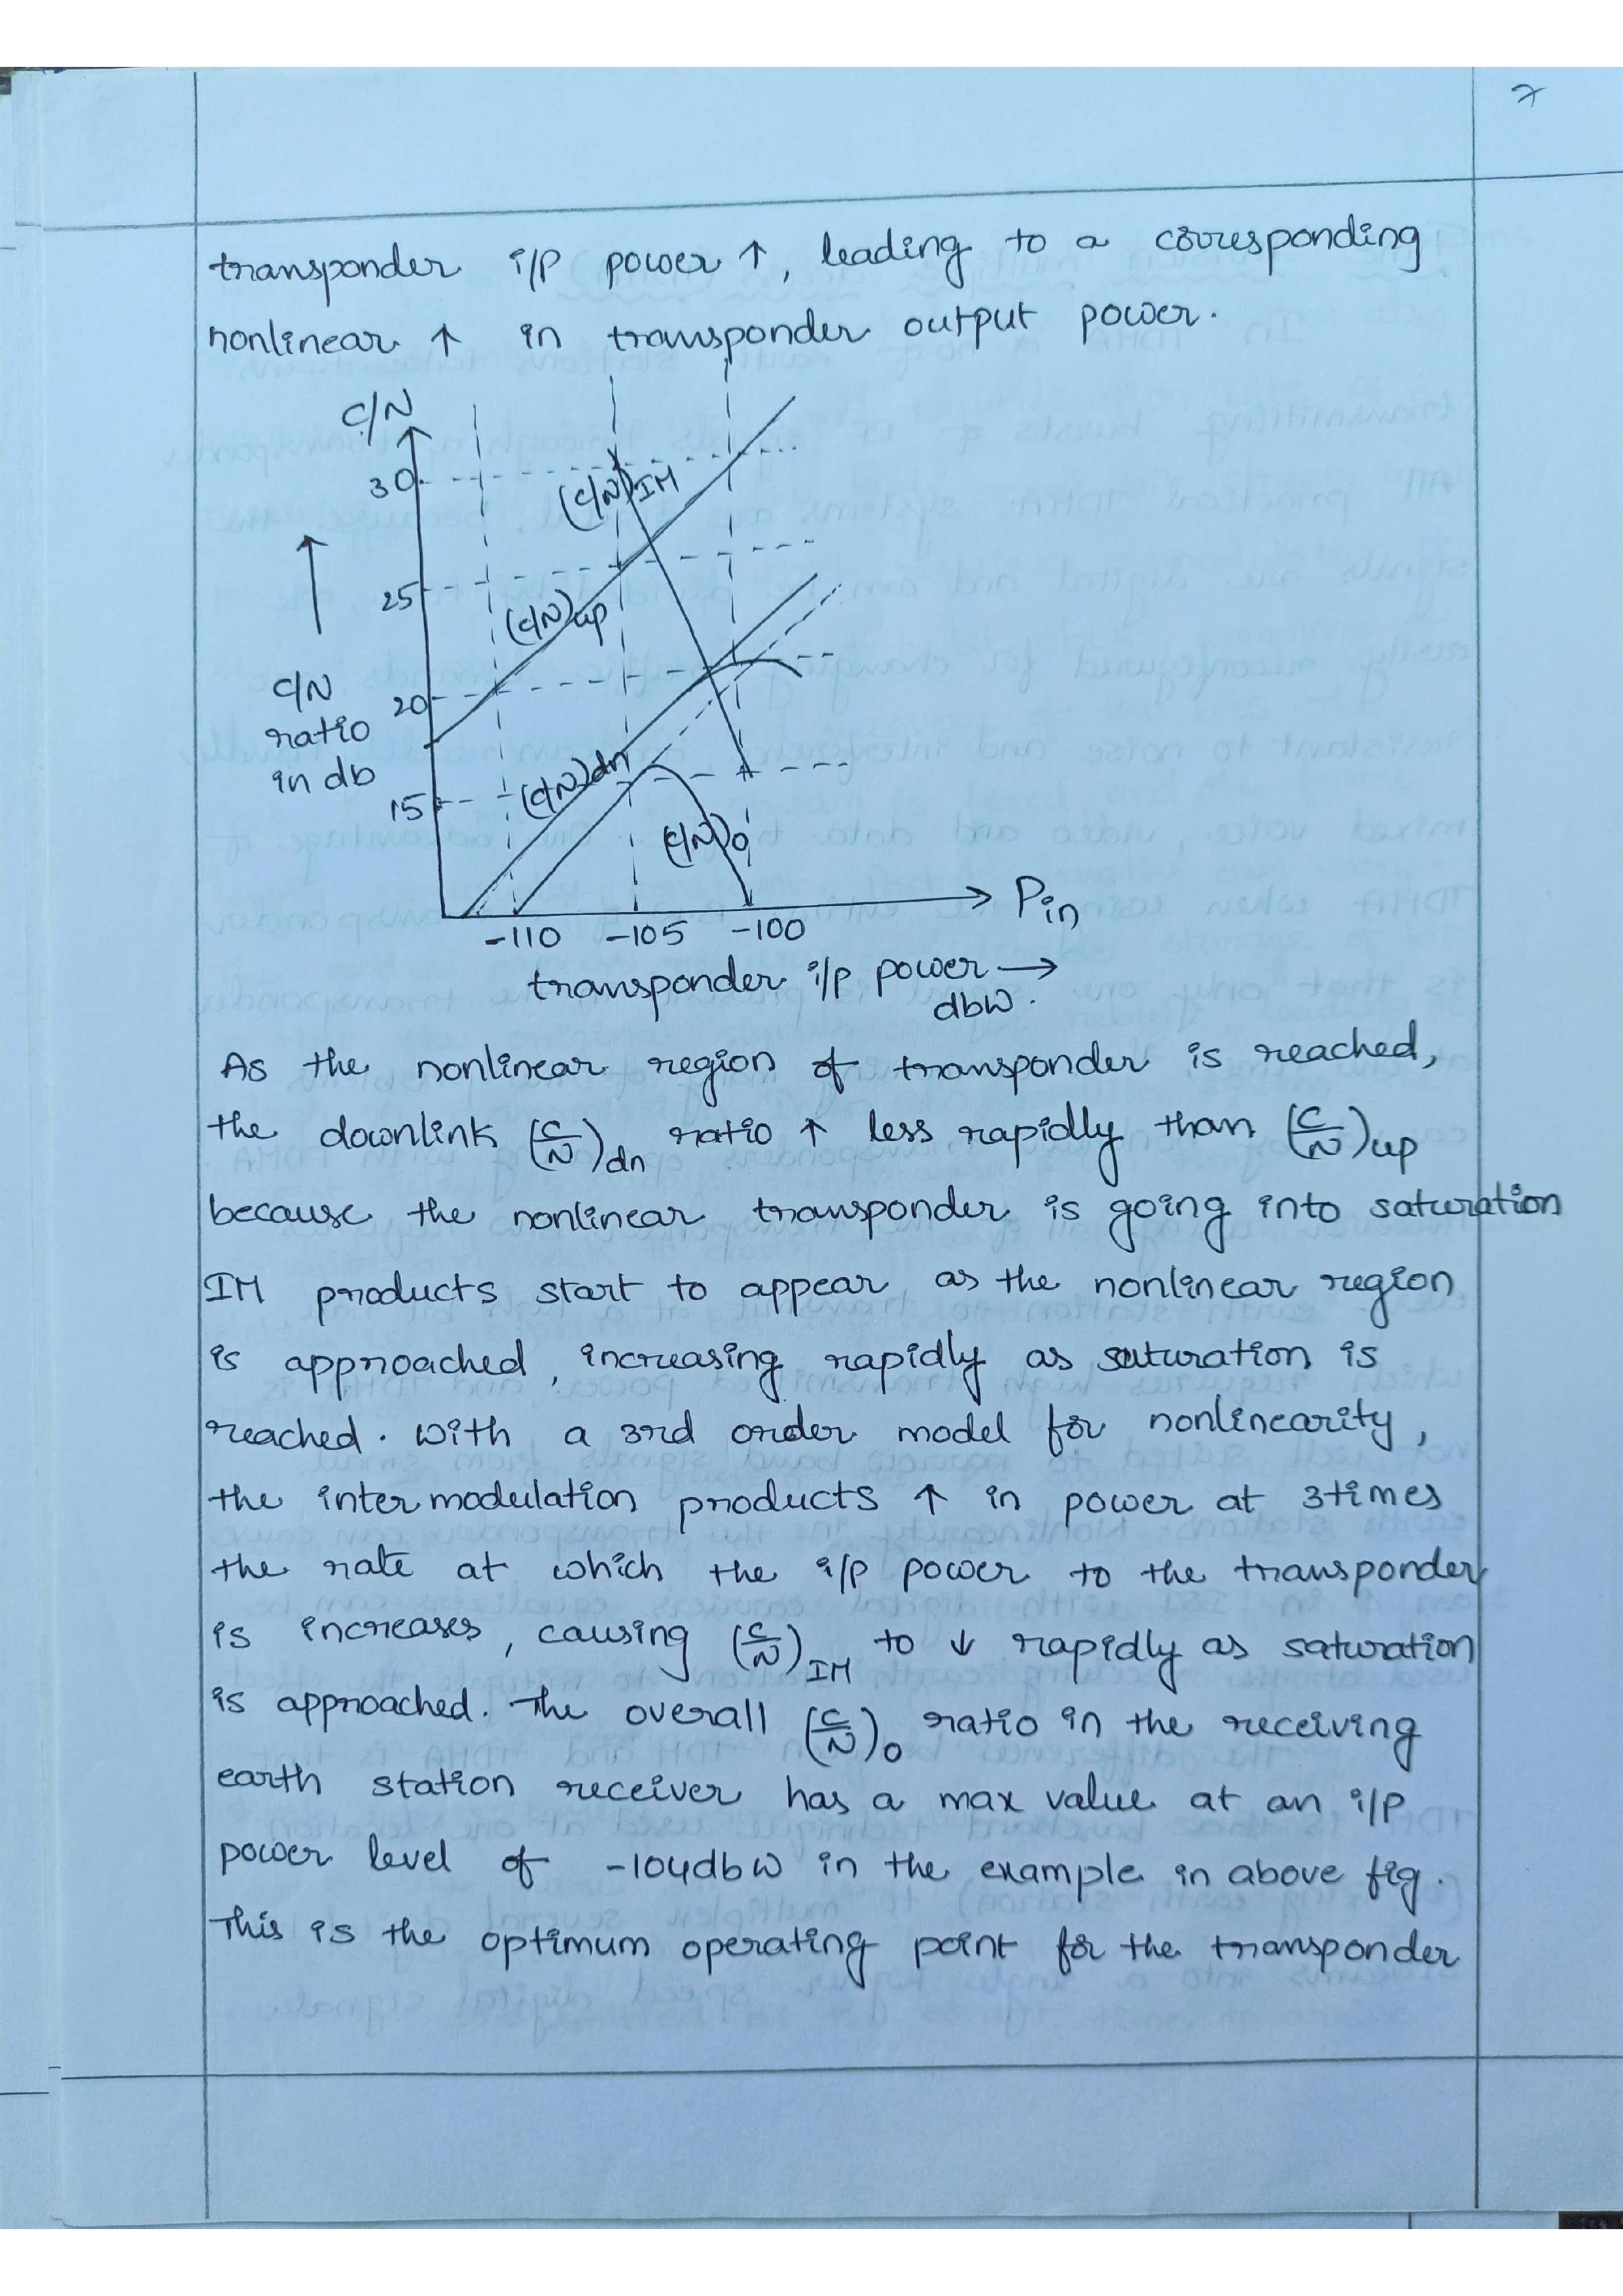 7
transponder i/p power ↑, leading to a corresponding
nonlinear ↑ in transponder output power.
C/N
30
(C/N)IM
25
(C/N)up
C/N
ratio
in db
20
(C/N)dn
15
(C/N)o
Pin
-110 -105 -100
transponder i/p power →
dbW.
As the nonlinear region of transponder is reached,
the downlink (C/N)dn ratio ↑ less rapidly than (C/N)up
because the nonlinear transponder is going into saturation
IM products start to appear as the nonlinear region
is approached, increasing rapidly as saturation is
reached. With a 3rd order model for nonlinearity,
the intermodulation products ↑ in power at 3times
the rate at which the i/p power to the transponder
is increases, causing (C/N)IM to ↓ rapidly as saturation
is approached. The overall (C/N)o ratio in the receiving
earth station receiver has a max value at an i/p
power level of -104dbW in the example in above fig.
This is the optimum operating point for the transponder